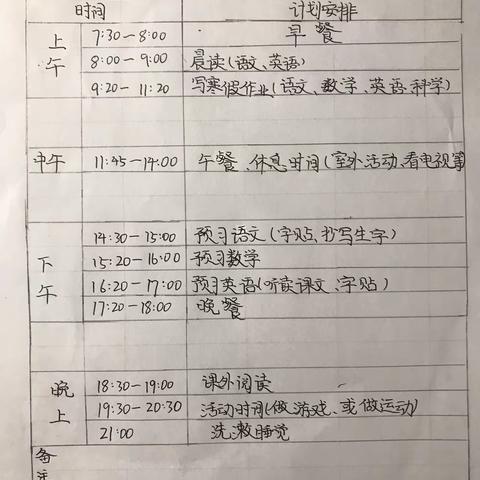 时间 计划安排
上午 7:30-8:00 早餐
8:00-9:00 晨读(语文、英语)
9:20-11:20 写寒假作业(语文、数学、英语、科学)
中午 11:45-14:00 午餐、休息时间(室外活动、看电视等
下午 14:30-15:00 预习语文(字贴、抄写生字)
15:20-16:00 预习数学
16:20-17:00 预习英语(听读课文、字贴)
17:20-18:00 晚餐
晚上 18:30-19:00 课外阅读
19:30-20:30 活动时间(做游戏、或做运动)
21:00 洗漱睡觉
备注